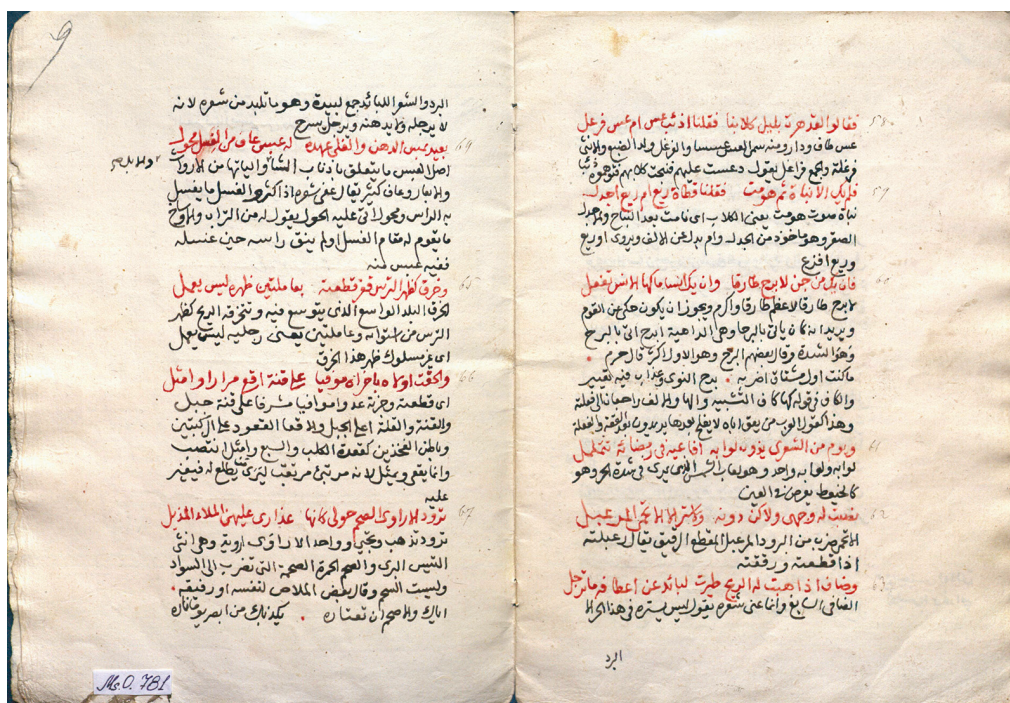 فقالوا لقد هرت بليل كلابنا فقلنا اذئب عس ام عس فرعل
58
عس طاف ودار ومنه سمي العسس عسسا والفرعل ولد الضبع والانثى
فرعلة والجمع فراعل يقول دعست عليهم فنبحت كلابهم
فلم يك الا نباة ثم هومت فقلنا قطاة ريع ام ريع اجدل
59
نباة صوت هومت يعني الكلاب اي نامت بعد النباح والاجدل
الصقر وهو ماخوذ من الجدل وام بدل من الالف ويروى اوريع
وريع افزع
فان يك من جن لابرح طارقا وان يك انسا ماكها الانس تفعل
60
لابرح طارقا لاعظم طارقا واكرم ويجوز ان يكون حكى عن القوم
ويريد انه كان ياتي بالبرحا وهي الداهية ابرح اتى بالبرح
وهو الشدة وقال بعضهم البرح وهو الاول اكثر قال
ما كنت اول مشتاق اضر به برح النوى وعذاب فيه تعبير
والكاف في قوله كها كاف التشبيه والها والالف راجعتان الى الفعلة
وهذا كقول العرب من يعق اباه لا يفلح بعدها يريدون
ويوم من الشعرى يذوب لوابه افاعيه في رمضائه تتململ
61
لوابه ولعابه واحد وهو لعاب الشمس الذي يرى في شدة الحر وهو
كالخيوط يعرض في العين
نصبت له وجهي ولا كن دونه ولا ستر الا الاتحمي المرعبل
62
الاتحمي ضرب من البرود المرعبل المقطع الرقيق يقال رعبلته
اذا قطعته ورققته
وضاف اذا هبت له الريح طيرت لبائد عن اعطافه ما ترجل
63
الضافي السابغ وانما عنى شعره يقول ليس يستره في هذا الحر الا
البرد
9
البرد والشعر اللبائد جمع لبيدة وهو ما تلبد من شعره لانه
لا يرجله ولا يدهنه ويرجل يسرح
بعيد بمس الدهن والفلي عهده له عبس عاف من الغسل محول
64
اصل العبس ما يتعلق باذناب الشاء والياتها من الارواث
والابعار وعاف كثير يقال عفى شعره اذا كثر والغسل ما يغسل
به الراس ومحول اتى عليه الحول يقول له من التراب والاوساخ
ما يقوم له مقام الغسل اولم ينق راسه حين غسله
ففيه عبس منه
وخرق كظهر الترس قفر قطعته بعاملتين ظهره ليس يعمل
65
الخرق البلد الواسع الذي يتوسع فيه وتنخرقه الريح كظهر
الترس من استوائه وعاملتين يعني رجليه ليس يعمل
اي غير مسلوك ظهر هذا الخرق
والحقت اولاه باخراه موفيا على قنة اقعي مرارا وامثل
66
اي قطعته وحزته عدوا موافيا مشرفا على قنة جبل
والقنة والقلة اعلى الجبل والاقعا القعود على الركبتين
وباطن الفخذين كقعدة الكلب والسبع وامثل انتصب
وانما يقعي ويمثل لانه مرتبئ مرتقب ليرى من يطلع له فيغير
عليه
ترود الاراوي الصحم حولي كانها عذارى عليهن الملاء المذيل
67
ترود تذهب وتجي وواحد الاراوى اروية وهي انثى
التيس البري والصحم الحمرة الصحمة التي تضرب الى السواد
وليست السحم وقال بعض الملاحن لنفسه اورفيقه
اياك والاصحم ان تغتاره يكد نابك من
Ms.O. 781